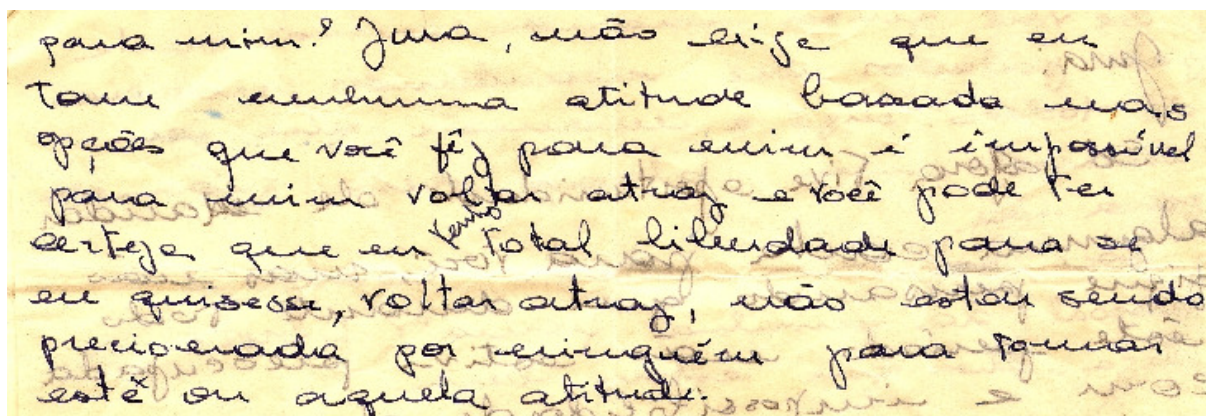 para mim? Jura, não exige que eu
tome nenhuma atitude baseada nas
opções que você fêz para mim é impossível
para mim voltar atraz e você pode ter
certeja que eu tenho total liberdade para se
eu quisesse, voltar atraz, não estou sendo
precionada por ninguém para tomar
está ou aquela atitude.